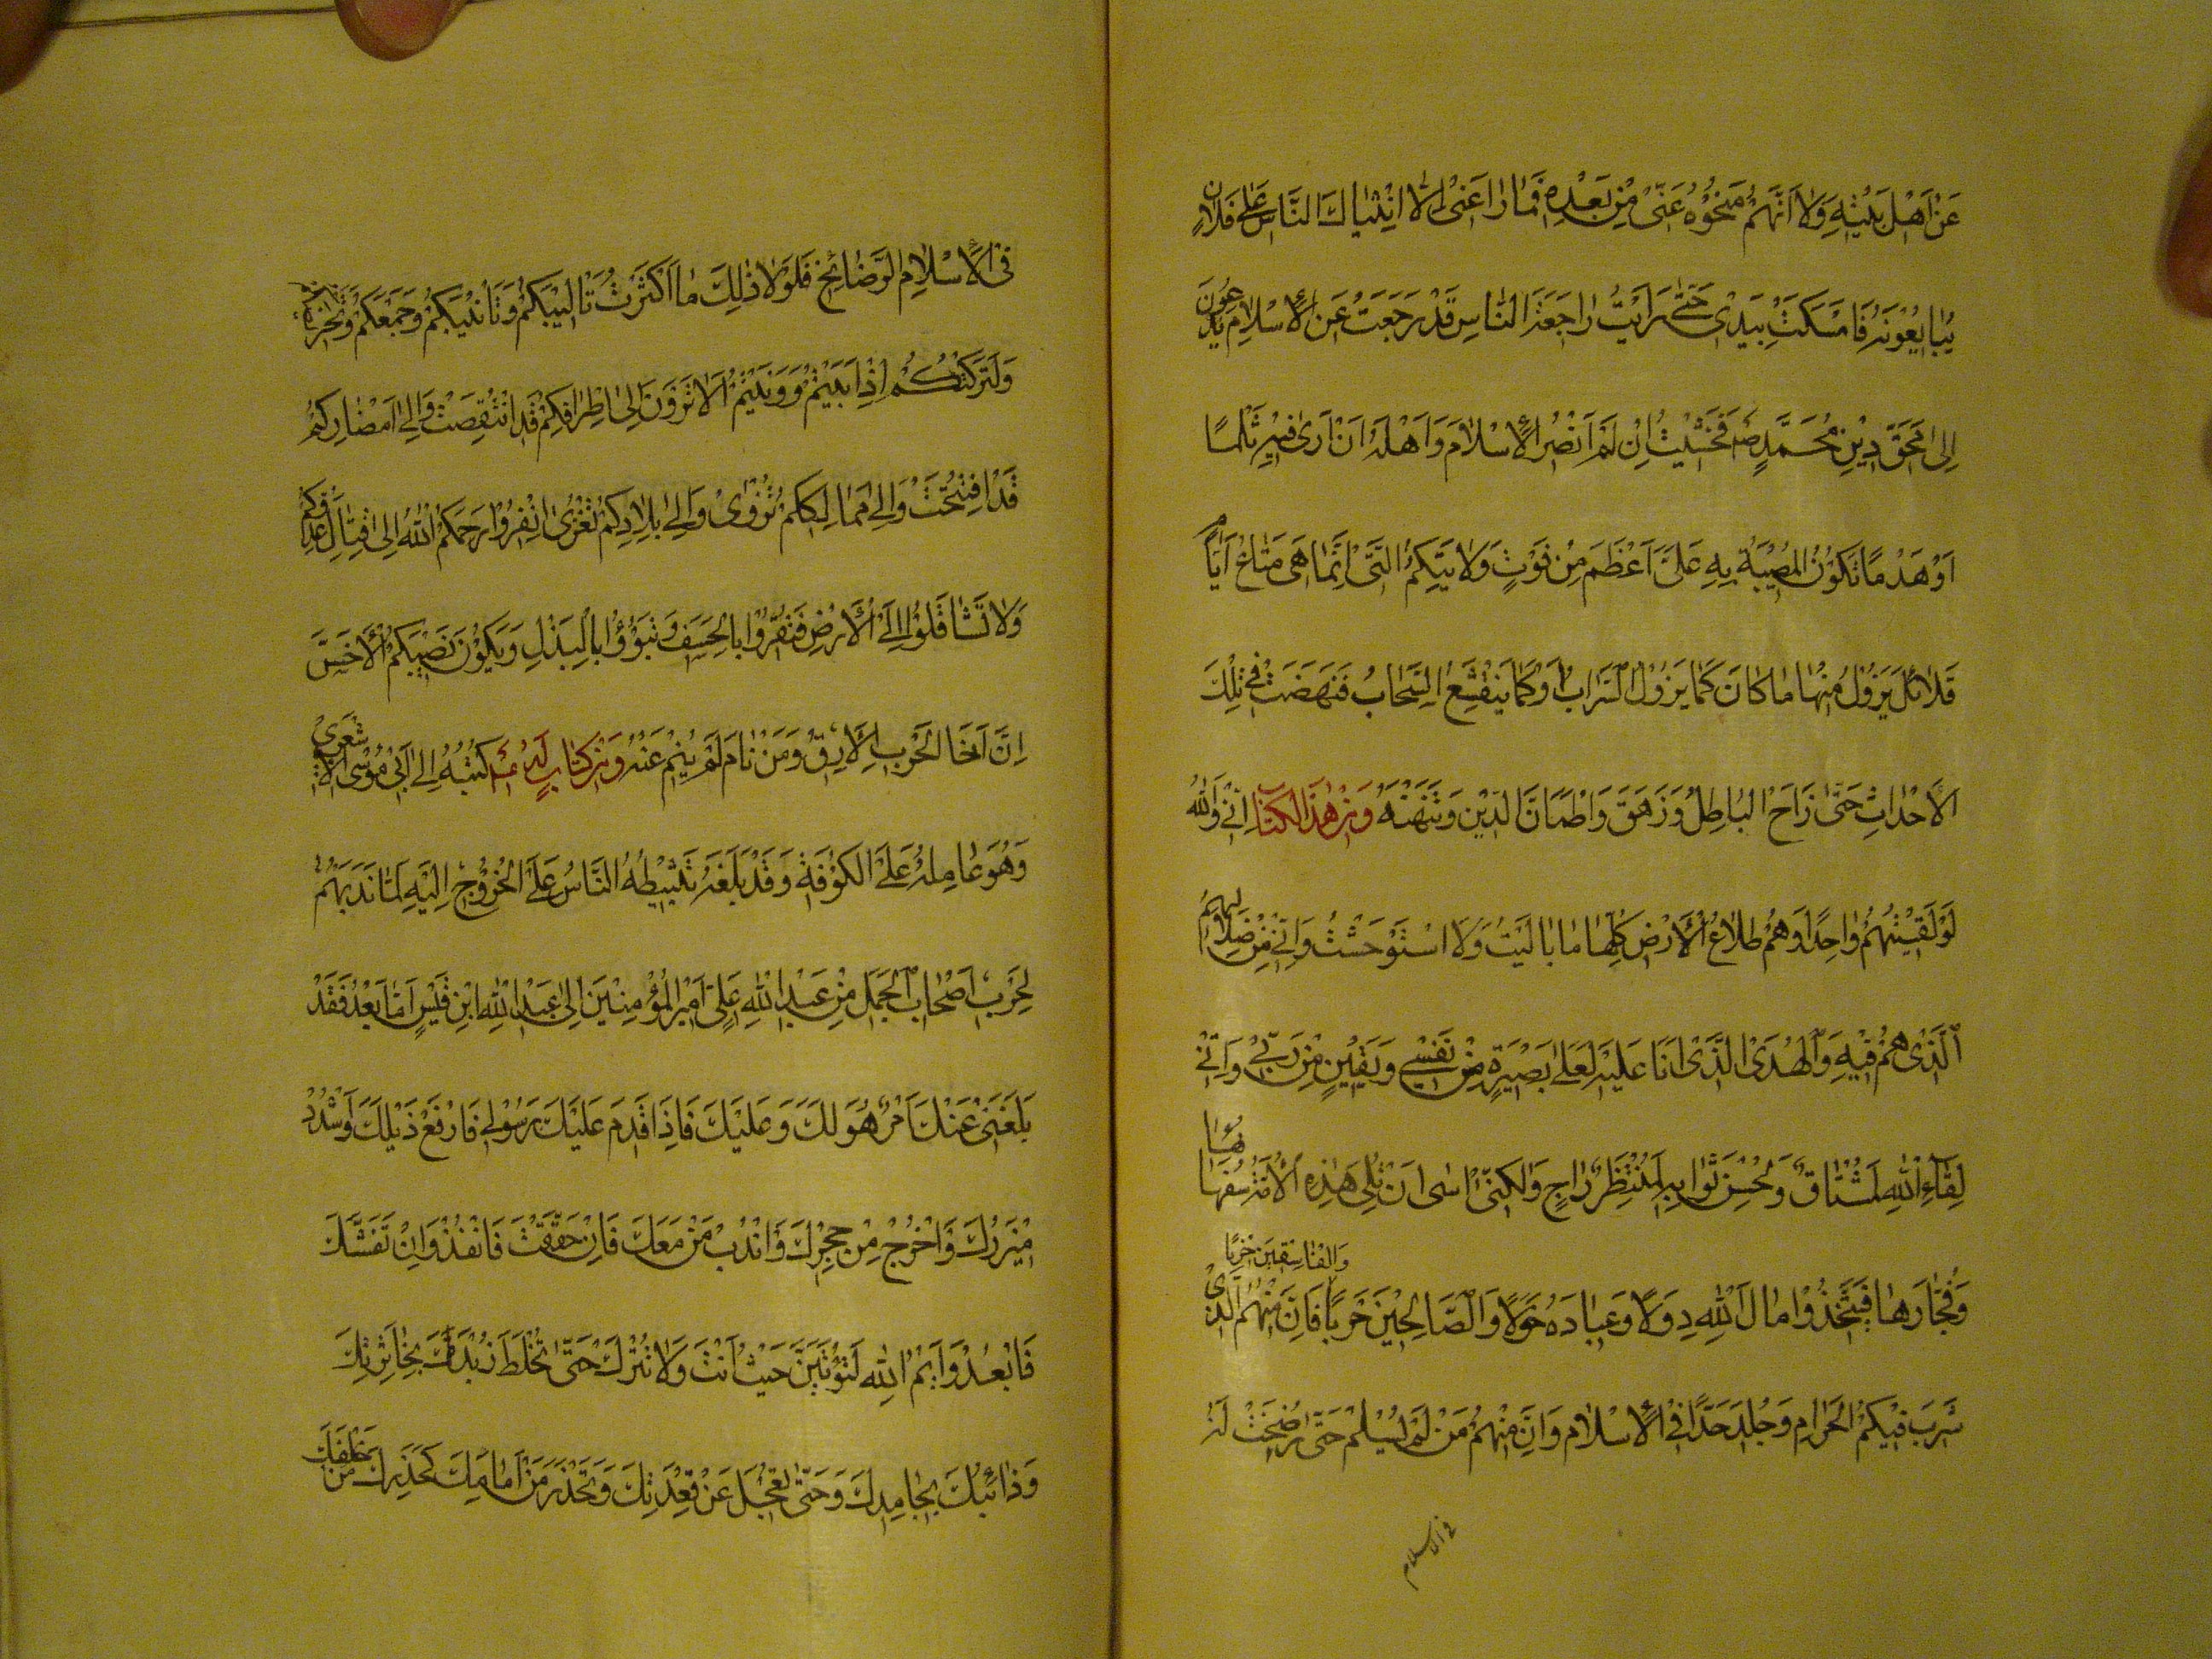 عَنْ اَهْلِ بَيْتِهِ وَلَا اَنَّهُمْ مُنَحُّوْهُ عَنّىْ مِنْ بَعْدِهِ فَمَا رَاعَنىْ اِلَّا انْثِيَالُ النَّاسِ عَلىٰ فُلَانٍ
يُبَايِعُوْنَهُ فَامْسَكْتُ بِيَدِىْ حَتّٰى رَاَيْتُ رَاجِعَةَ النَّاسِ قَدْ رَجَعَتْ عَنِ الْاِسْلَامِ يَدْعُوْنَ
اِلىٰ مَحْقِ دِيْنِ مُحَمَّدٍ ص فَخَشِيْتُ اِنْ لَمْ اَنْصُرِ الْاِسْلَامَ وَاَهْلَهُ اَنْ اَرىٰ فِيْهِ ثَلْمًا
اَوْ هَدْمًا تَكُوْنُ الْمُصِيْبَةُ بِهِ عَلَىَّ اَعْظَمَ مِنْ فَوْتِ وَلَايَتِكُمُ الَّتىْ اِنَّمَا هِىَ مَتَاعُ اَيَّامٍ
قَلَائِلَ يَزُوْلُ مِنْهَا مَا كَانَ كَمَا يَزُوْلُ السَّرَابُ اَوْ كَمَا يَنْقَشِعُ السَّحَابُ فَنَهَضْتُ فىْ تِلْكَ
الْاَحْدَاثِ حَتّٰى زَاحَ الْبَاطِلُ وَزَهَقَ وَاطْمَاَنَّ الدّيْنُ وَتَنَهْنَهَ وَمِنْ هٰذَا الْكِتَابِ اِنّىْ وَاللهِ
لَوْ لَقِيْتُهُمْ وَاحِدًا وَهُمْ طِلَاعُ الْاَرْضِ كُلّهَا مَا بَالَيْتُ وَلَا اسْتَوْحَشْتُ وَاِنّىْ مِنْ ضَلَالِهِمُ
الَّذىْ هُمْ فِيْهِ وَالْهُدَى الَّذىْ اَنَا عَلَيْهِ لَعَلىٰ بَصِيْرَةٍ مِنْ نَفْسىْ وَيَقِيْنٍ مِنْ رَبّىْ وَاِنّىْ
لِقَاءِ اللهِ لَمُشْتَاقٌ وَلِحُسْنِ ثَوَابِهِ لَمُنْتَظِرٌ رَاجٍ وَلٰكِنَّنىْ اٰسىٰ اَنْ يَلِىَ هٰذِهِ الْاُمَّةَ سُفَهَاؤُهَا
وَفُجَّارُهَا فَيَتَّخِذُوْا مَالَ اللهِ دِوَلًا وَعِبَادَهُ خَوَلًا وَالصَّالِحِيْنَ حَرْبًا وَالْفَاسِقِيْنَ حِزْبًا فَاِنَّ مِنْهُمُ الَّذِىْ
شَرِبَ فِيْكُمُ الْحَرَامَ وَجُلِدَ حَدًّا فِى الْاِسْلَامِ وَاِنَّ مِنْهُمْ مَنْ لَمْ يُسْلِمْ حَتّٰى رُضِخَتْ لَهُ
فى الاسلام
فِى الْاِسْلَامِ الرَّضَائِخُ فَلَوْلَا ذٰلِكَ مَا اَكْثَرْتُ تَالِيْبَكُمْ وَتَانِيْبَكُمْ وَجَمْعَكُمْ وَتَحْرِيْضَكُمْ
وَلَتَرَكْتُكُمْ اِذْ اَبَيْتُمْ وَوَنَيْتُمْ اَلَا تَرَوْنَ اِلىٰ اَطْرَافِكُمْ قَدِ انْتُقِصَتْ وَاِلىٰ اَمْصَارِكُمْ
قَدِ افْتُتِحَتْ وَاِلىٰ مَمَالِكِكُمْ تُزْوىٰ وَاِلىٰ بِلَادِكُمْ تُغْزىٰ اِنْفِرُوْا رَحِمَكُمُ اللهُ اِلىٰ قِتَالِ عَدُوّكُمْ
وَلَا تَثَّاقَلُوْا اِلَى الْاَرْضِ فَتُقِرُّوْا بِالْخَسْفِ وَتَبُوْؤُا بِالذُّلّ وَيَكُوْنَ نَصِيْبُكُمُ الْاَخَسَّ
اِنَّ اَخَا الْحَرْبِ الْاَرِقُ وَمَنْ نَامَ لَمْ يُنَمْ عَنْهُ وَمِنْ كِتَابٍ لَهُ ع كَتَبَهُ اِلىٰ اَبىْ مُوْسَى الْاَشْعَرِىْ
وَهُوَ عَامِلُهُ عَلَى الْكُوْفَةِ وَقَدْ بَلَغَهُ تَثْبِيْطُهُ النَّاسَ عَلَى الْخُرُوْجِ اِلَيْهِ لَمَّا نَدَبَهُمْ
لِحَرْبِ اَصْحَابِ الْجَمَلِ مِنْ عَبْدِ اللهِ عَلِىّ اَمِيْرِ الْمُؤْمِنِيْنَ اِلىٰ عَبْدِ اللهِ ابْنِ قَيْسٍ اَمَّا بَعْدُ فَقَدْ
بَلَغَنىْ عَنْكَ اَمْرٌ هُوَ لَكَ وَعَلَيْكَ فَاِذَا قَدِمَ عَلَيْكَ رَسُوْلىْ فَارْفَعْ ذَيْلَكَ وَاشْدُدْ
مِئْزَرَكَ وَاخْرُجْ مِنْ جُحْرِكَ وَانْدُبْ مَنْ مَعَكَ فَاِنْ حَقَّقْتَ فَانْفُذْ وَاِنْ تَفَشَّلْتَ
فَابْعُدْ وَاَيْمُ اللهِ لَتُؤْتَيَنَّ حَيْثُ اَنْتَ وَلَا تُتْرَكُ حَتّٰى تُخْلَطَ زُبْدُكَ بِخَاثِرِكَ
وَذَائِبُكَ بِجَامِدِكَ وَحَتّٰى تُعْجَلَ عَنْ قِعْدَتِكَ وَتَحْذَرَ مِنْ اَمَامِكَ كَحَذَرِكَ مِنْ خَلْفِكَ